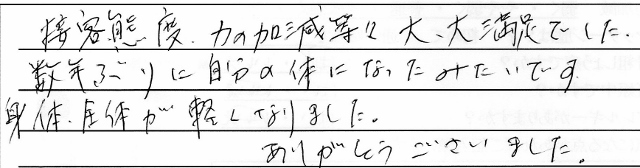 接客態度、力の加減等々 大、大満足でした。
数年ぶりに自分の体になったみたいです
身体、全体が軽くなりました。
ありがとうございました。